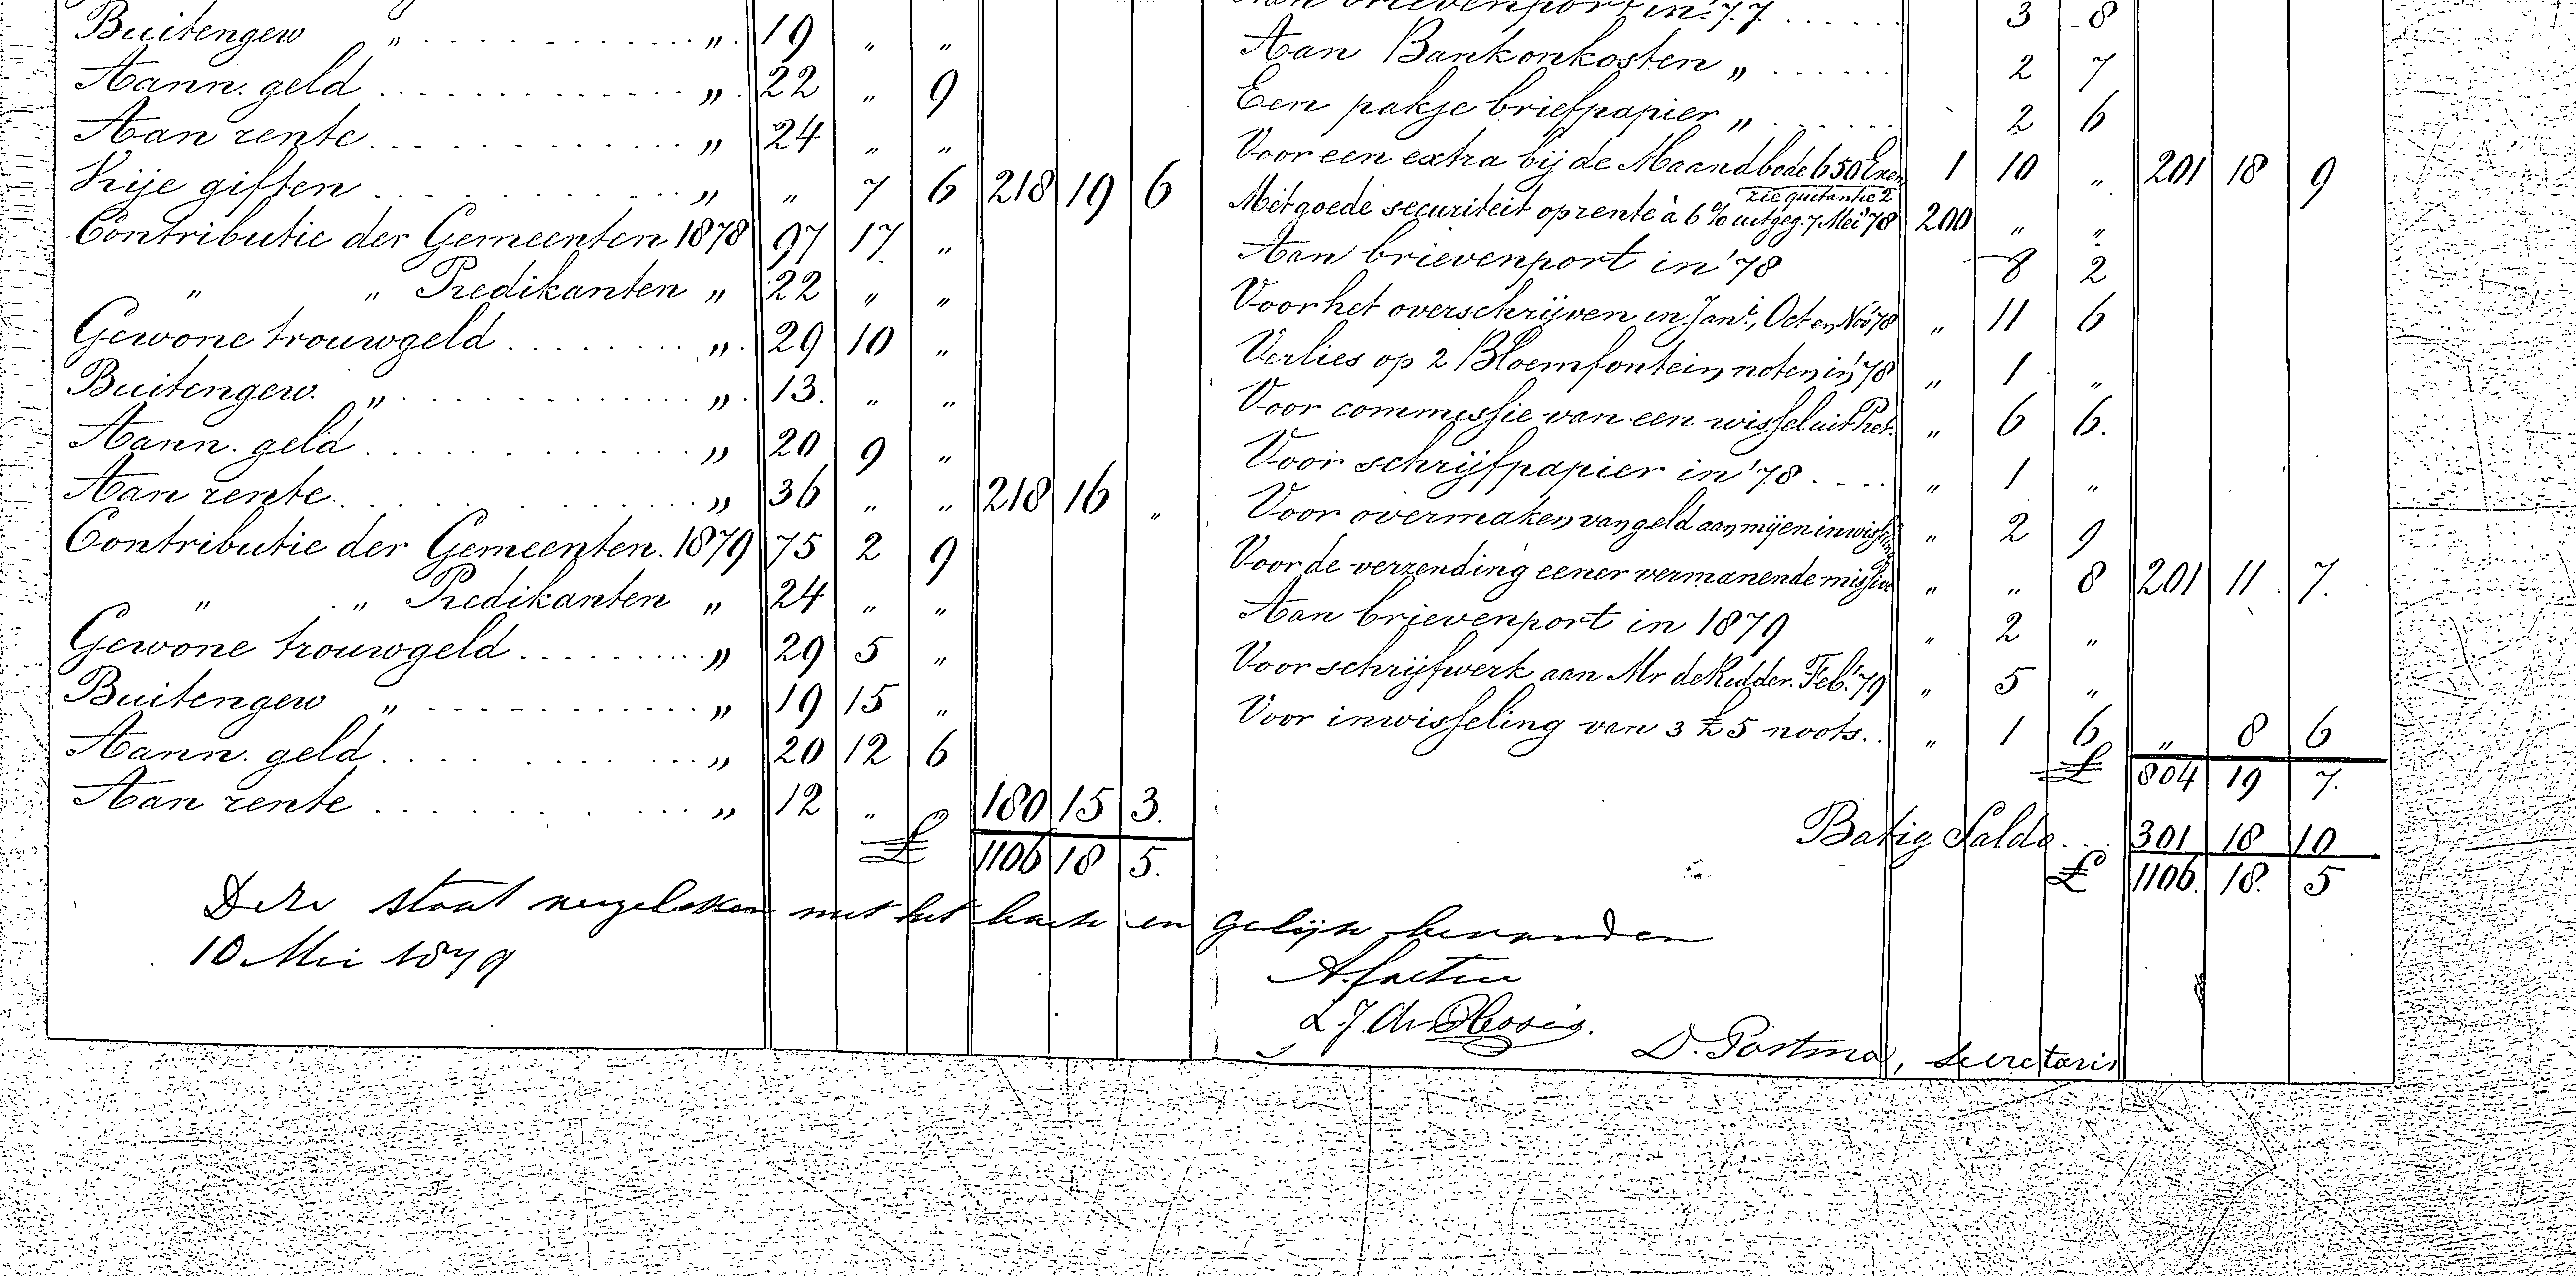 Buitengew „ . . . . . . . „ 19 „ „
Aann. geld . . . . . . . „ 22 „ 9
Aan rente . . . . . . . „ 24 „ „
Vrije giften . . . . . . . „ „ 7 6 218 19 6
Contributie der Gemeenten 1878 97 17 „
„ „ Predikanten „ 22 „ „
Gewone trouwgeld . . . . . . . „ 29 10 „
Buitengew. „ . . . . . . . „ 13. „ „
Aann. geld . . . . . . . „ 20 9 „
Aan rente . . . . . . . „ 36 „ „ 218 16 „
Contributie der Gemeenten. 1879 75 2 9
„ „ Predikanten „ 24 „ „
Gewone trouwgeld . . . . . . . „ 29 5 „
Buitengew „ . . . . . . . „ 19 15 „
Aann. geld . . . . . . . „ 20 12 6
Aan rente . . . . . . . „ 12 „ „ 180 15 3.
£ 1106 18 5.
Aan brievenport in '77 . . . . . . 3 8
Aan Bankonkosten „ . . . . . . 2 7
Een pakje briefpapier „ . . . . . . 2 6
Voor een extra bij de Maandbode 650 Exem 1 10 „ 201 18 9
zie quitantie 2
Met goede securiteit op rente à 6 % uitgeg. 7 Mei '78 200 „ „
Aan brievenport in '78 8 2
Voor het overschrijven in Jan., Oct en Nov '78 „ 11 6
Verlies op 2 Bloemfontein noten in '78 „ 1 „
Voor commissie van een wissel uit Pret. „ 6 6.
Voor schrijfpapier in '78 . . . . „ 1 „
Voor overmaken van geld aan mij en inwisseling „ 2 9
Voor de verzending eener vermanende missive „ „ 8 201 11 7.
Aan brievenport in 1879 „ 2 „
Voor schrijfwerk aan Mr de Ridder. Feb. '79 „ 5 „
Voor inwisseling van 3 £5 noots. . „ 1 6 „ 8 6
£ 804 19 7.
Batig Saldo . . 301 18 10
£ 1106. 18. 5
Deze staat vergeleken met het boek en gelijk bevonden
10 Mei 1879
L. J. du Plessis.
D. Postma, secretaris